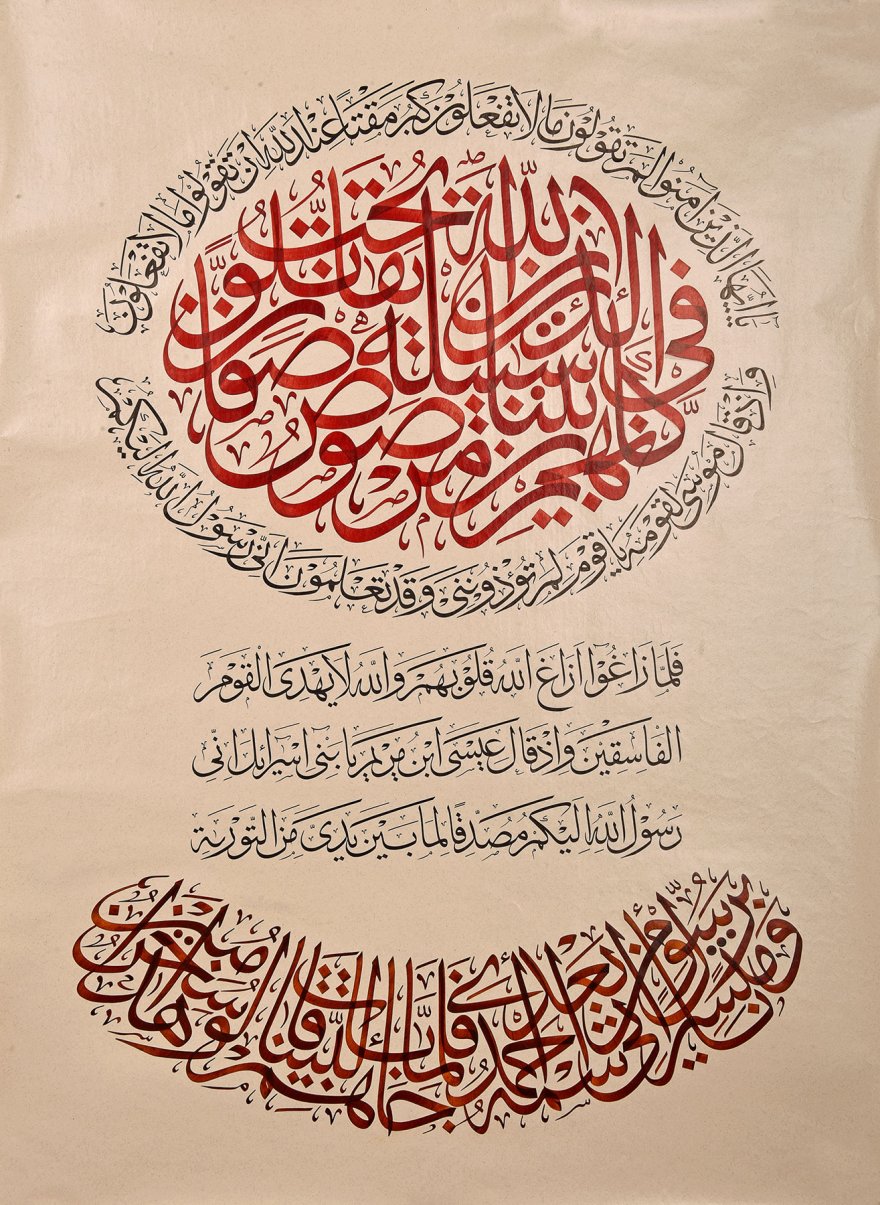 يا ايها الذين امنوا لم تقولون ما لا تفعلون كبر مقتا عند الله ان تقولوا ما لا تفعلون
ان الله يحب الذين يقاتلون في سبيله صفا كانهم بنيان مرصوص
وَاِذ قال موسى لقومه يا قوم لم تؤذونني وقد تعلمون اني رسول الله اليكم
فلما زاغوا ازاغ الله قلوبهم والله لا يهدى القوم
الفاسقين واذ قال عيسى ابن مريم يا بنى اسرائل انى
رسول الله اليكم مصدقا لما بين يدى من التورية
ومبشرا برسول ياتى من بعدى اسمه احمد فلما جاهم بالبينات قالوا هذا سحر مبين